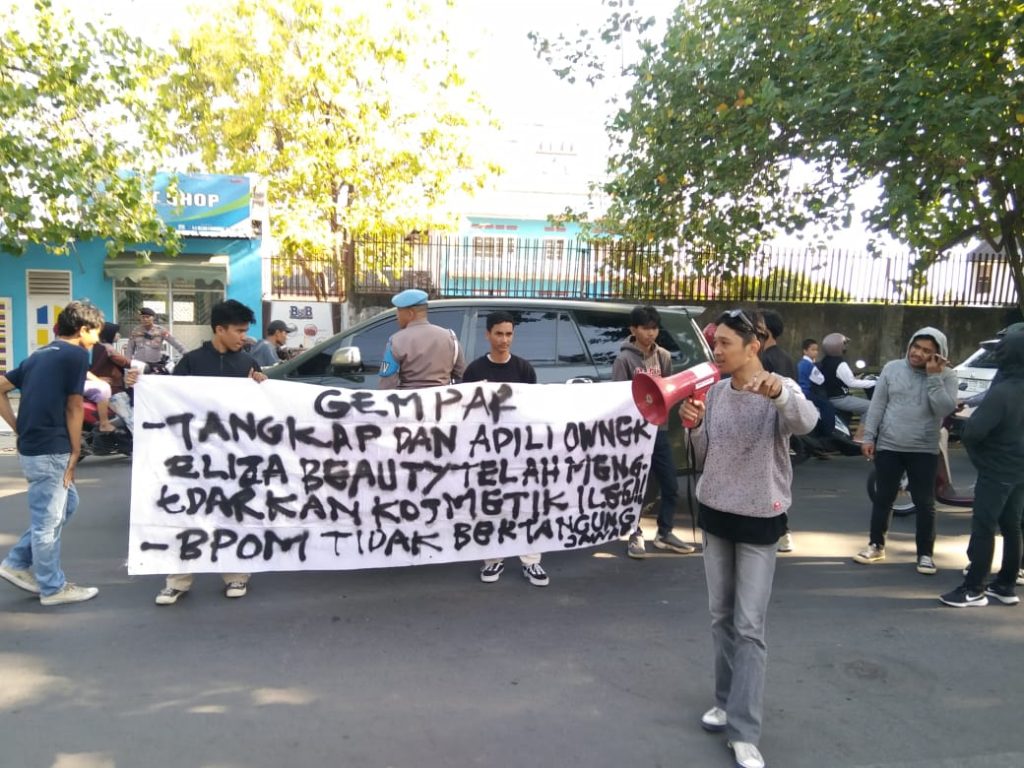 SHOP
B&B
GEMPAR
- TANGKAP DAN ADILI OWNER
ELIZA BEAUTY TELAH MENG-
EDARKAN KOSMETIK ILEGAL
- BPOM TIDAK BERTANGGUNG
JAWAB